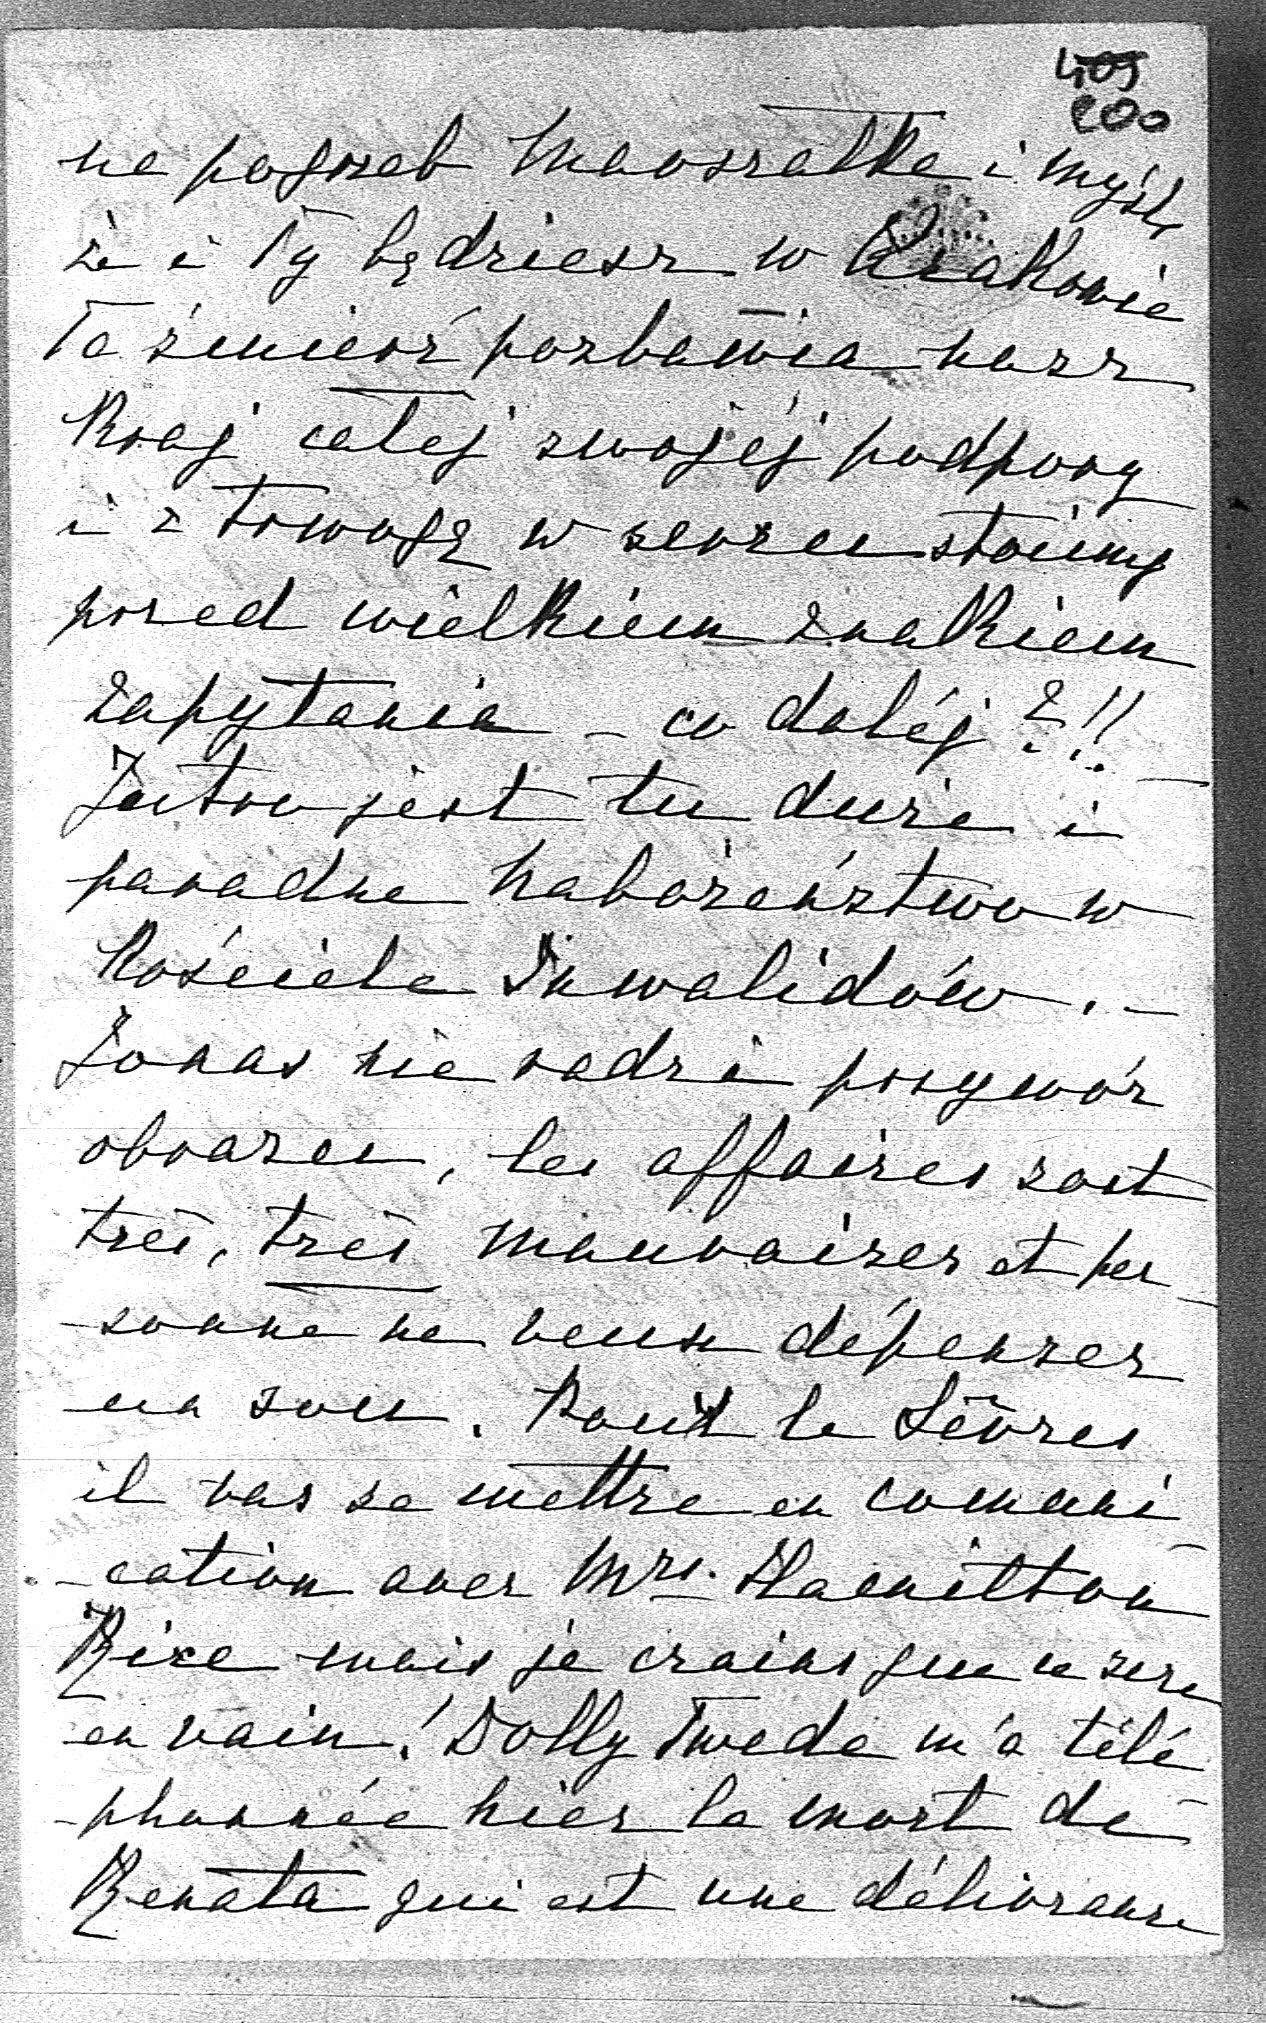 405
200
na pogrzeb Marszałka i myślę
że i Ty będziesz w Krakowie
Ta śmierć pozbawia nasz
Kraj całej swojéj podpory
i z trwogą w sercu stoimy
przed wielkiem znakiem
zapytania – co daléj ?!! –
Jutro jest tu duże i
paradne nabożeństwo w
Kościele Inwalidów. –
Jonas nie radzi przywóz
obrazu, les affaires sont
très, très mauvaises et per
-sonne ne veux dépenser
un sou. Pour le Sèvres
il vas se mettre en comuni
-cation avec Mrs. Hamilton
Rice mais je crains que ce sera
en vain! Dolly Twede m'a télé
-phonnée hier la mort de
Renata qui est une délivrance